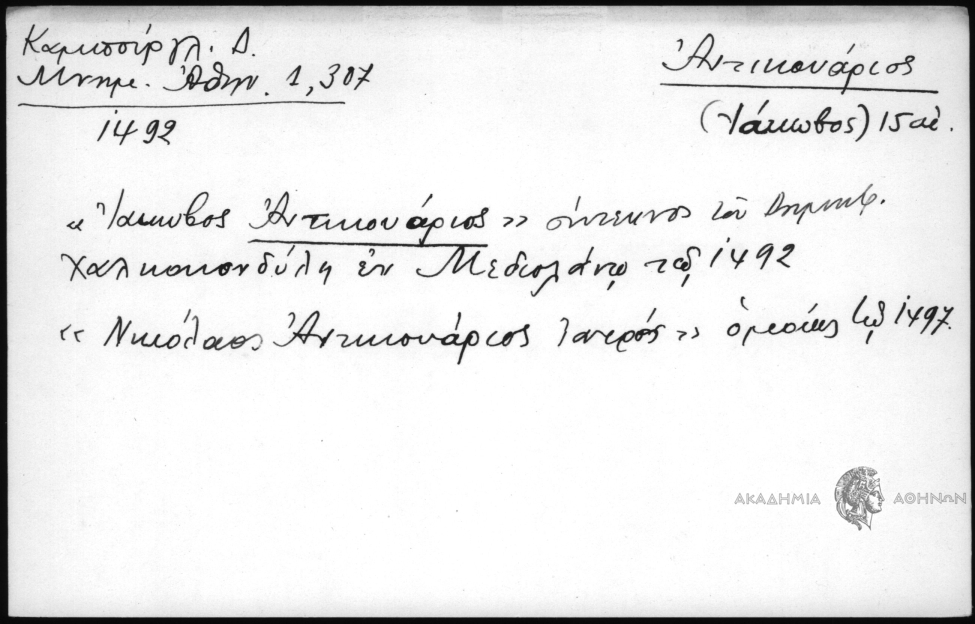 Καμπούρογλ. Δ.
Μνημ. Ἀθην. 1, 307
1492
Ἀντικουάριος
(Ἰάκωβος) 15 αἰ.
« Ἰάκωβος Ἀντικουάριος » σύντεκνος τοῦ Δημητρ.
Χαλκοκονδύλη ἐν Μεδιολάνῳ τῷ 1492
« Νικόλαος Ἀντικουάριος ἰατρός » ὁμοίως τῷ 1497.
ΑΚΑΔΗΜΙΑ ΑΘΗΝΩΝ